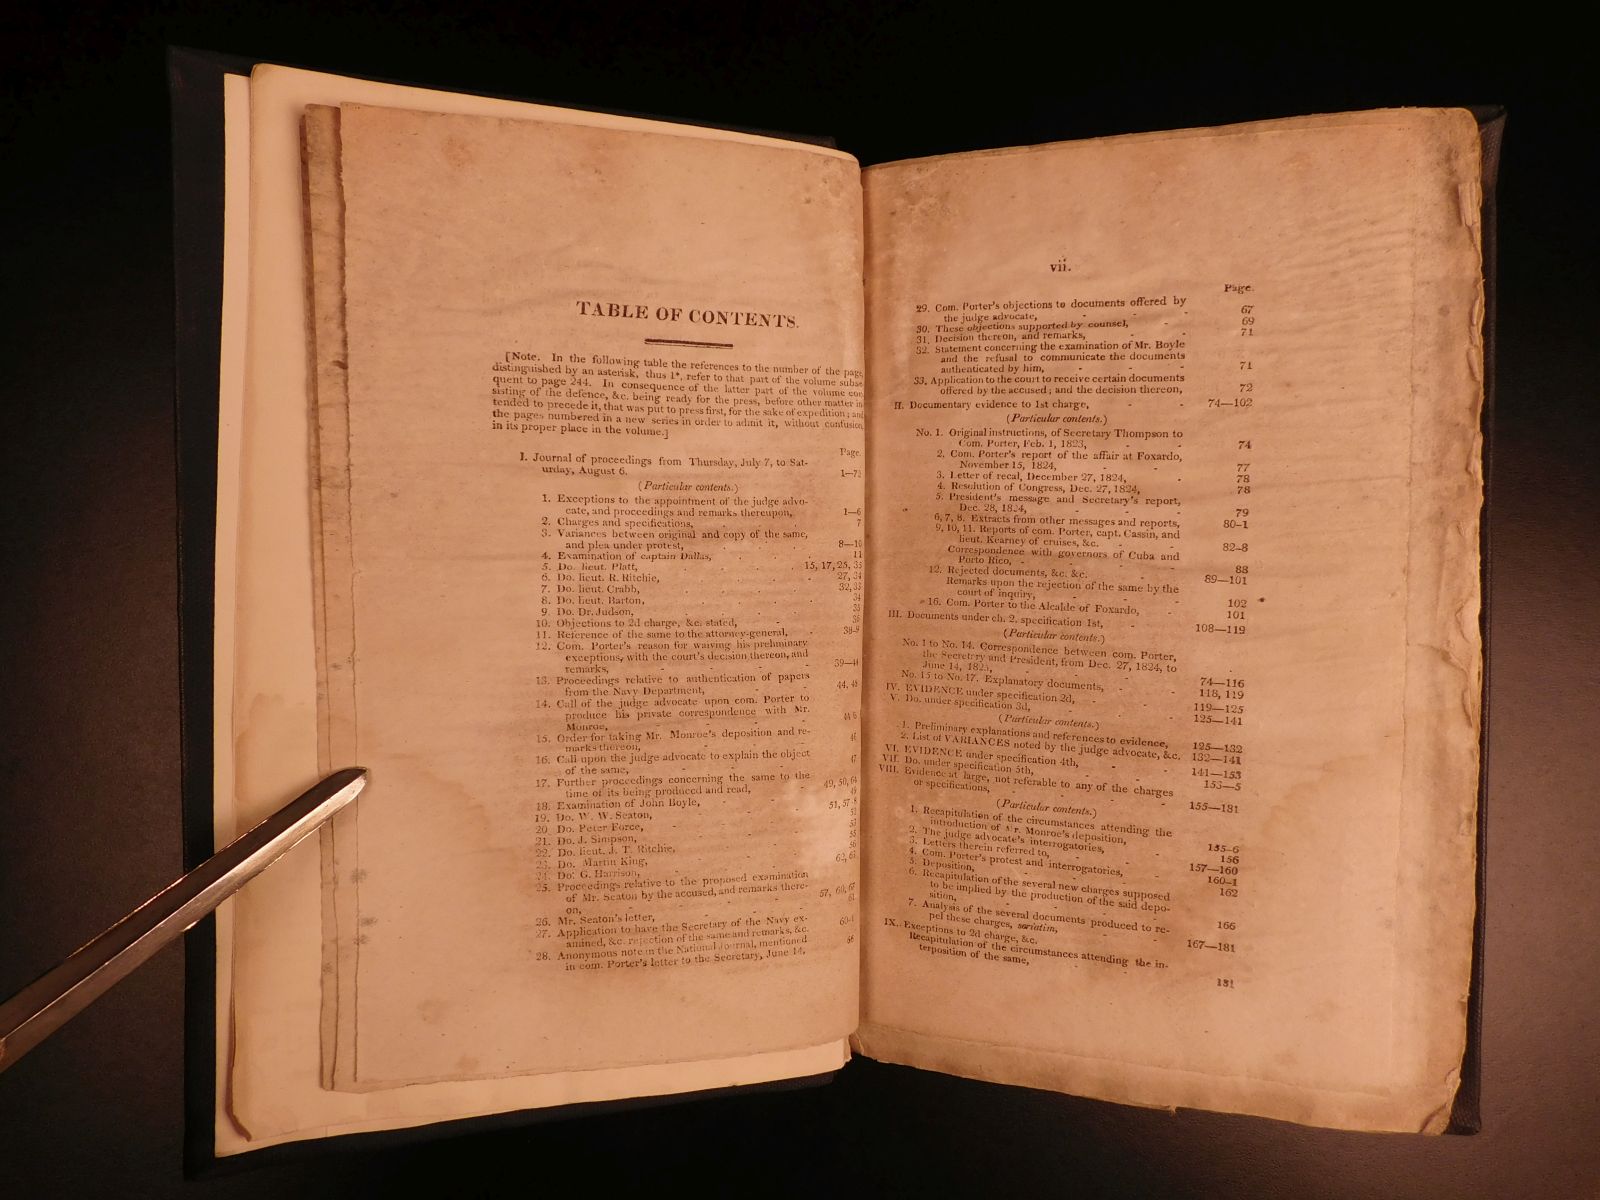 TABLE OF CONTENTS.
[Note. In the following table the references to the number of the page,
distinguished by an asterisk, thus 1*, refer to that part of the volume subse
quent to page 244. In consequence of the latter part of the volume con
sisting of the defence, &c. being ready for the press, before other matter in
tended to precede it, that was put to press first, for the sake of expedition; and
the pages numbered in a new series in order to admit it, without confusion
in its proper place in the volume.]
Page.
I. Journal of proceedings from Thursday, July 7, to Sat-
urday, August 6, 1—73
(Particular contents.)
1. Exceptions to the appointment of the judge advo-
cate, and proceedings and remarks thereupon, 1—6
2. Charges and specifications, 7
3. Variances between original and copy of the same,
and plea under protest, 8—10
4. Examination of captain Dallas, 11
5. Do. lieut. Platt, 15, 17, 25, 35
6. Do. lieut. R. Ritchie, 27, 34
7. Do. lieut. Crabb, 32, 33
8. Do. lieut. Barton, 34
9. Do. Dr. Judson, 35
10. Objections to 2d charge, &c. stated, 36
11. Reference of the same to the attorney-general, 38-9
12. Com. Porter's reason for waiving his preliminary
exceptions, with the court's decision thereon, and
remarks, 39—44
13. Proceedings relative to authentication of papers
from the Navy Department, 44, 48
14. Call of the judge advocate upon com. Porter to
produce his private correspondence with Mr.
Monroe,
15. Order for taking Mr. Monroe's deposition and re-
marks thereon, 46
16. Call upon the judge advocate to explain the object
of the same, 47
17. Further proceedings concerning the same to the
time of its being produced and read, 49, 50, 64
18. Examination of John Boyle, 49
19. Do. W. W. Seaton, 51, 57-8
20. Do. Peter Force,
21. Do. J. Simpson, 53
22. Do. lieut. J. T. Ritchie, 55
23. Do. Martin King, 56
24. Do. G. Harrison, 62, 65
25. Proceedings relative to the proposed examination
of Mr. Seaton by the accused, and remarks there-
on, 57, 60, 67
26. Mr. Seaton's letter, 61
27. Application to have the Secretary of the Navy ex-
amined, &c. rejection of the same and remarks, &c. 60-4
28. Anonymous note in the National Journal, mentioned
in com. Porter's letter to the Secretary, June 14, 66
vii.
Page.
29. Com. Porter's objections to documents offered by
the judge advocate, 67
30. These objections supported by counsel, 69
31. Decision thereon, and remarks, 71
32. Statement concerning the examination of Mr. Boyle
and the refusal to communicate the documents
authenticated by him, 71
33. Application to the court to receive certain documents
offered by the accused; and the decision thereon, 72
II. Documentary evidence to 1st charge, 74—102
(Particular contents.)
No. 1. Original instructions, of Secretary Thompson to
Com. Porter, Feb. 1, 1823, 74
2. Com. Porter's report of the affair at Foxardo,
November 15, 1824, 77
3. Letter of recal, December 27, 1824, 78
4. Resolution of Congress, Dec. 27, 1824, 78
5. President's message and Secretary's report,
Dec. 28, 1824, 79
6, 7, 8. Extracts from other messages and reports, 80-1
9, 10, 11. Reports of com. Porter, capt. Cassin, and
lieut. Kearney of cruises, &c. 82-8
Correspondence with governors of Cuba and
Porto Rico, 88
12. Rejected documents, &c. &c. 89—101
Remarks upon the rejection of the same by the
court of inquiry, 102
16. Com. Porter to the Alcalde of Foxardo, 101
III. Documents under ch. 2, specification 1st, 108—119
(Particular contents.)
No. 1 to No. 14. Correspondence between com. Porter,
the Secretary and President, from Dec. 27, 1824, to
June 14, 1825, 74—116
No. 15 to No. 17. Explanatory documents, 118, 119
IV. EVIDENCE under specification 2d, 119—125
V. Do. under specification 3d, 125—141
(Particular contents.)
1. Preliminary explanations and references to evidence, 125—132
2. List of VARIANCES noted by the judge advocate, &c. 132—141
VI. EVIDENCE under specification 4th, 141—153
VII. Do. under specification 5th, 153—5
VIII. Evidence at large, not referable to any of the charges
or specifications, 155—181
(Particular contents.)
1. Recapitulation of the circumstances attending the
introduction of Mr. Monroe's deposition, 155-6
2. The judge advocate's interrogatories, 156
3. Letters therein referred to, 157—160
4. Com. Porter's protest and interrogatories, 160-1
5. Deposition, 162
6. Recapitulation of the several new charges supposed
to be implied by the production of the said depo-
sition, 166
7. Analysis of the several documents produced to re-
pel these charges, seriatim, 167—181
IX. Exceptions to 2d charge, &c.
Recapitulation of the circumstances attending the in-
terposition of the same, 181